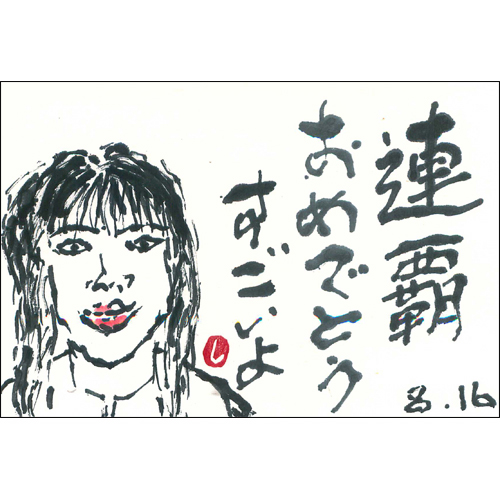 連覇
おめでとう
すごいよ
8.16
し